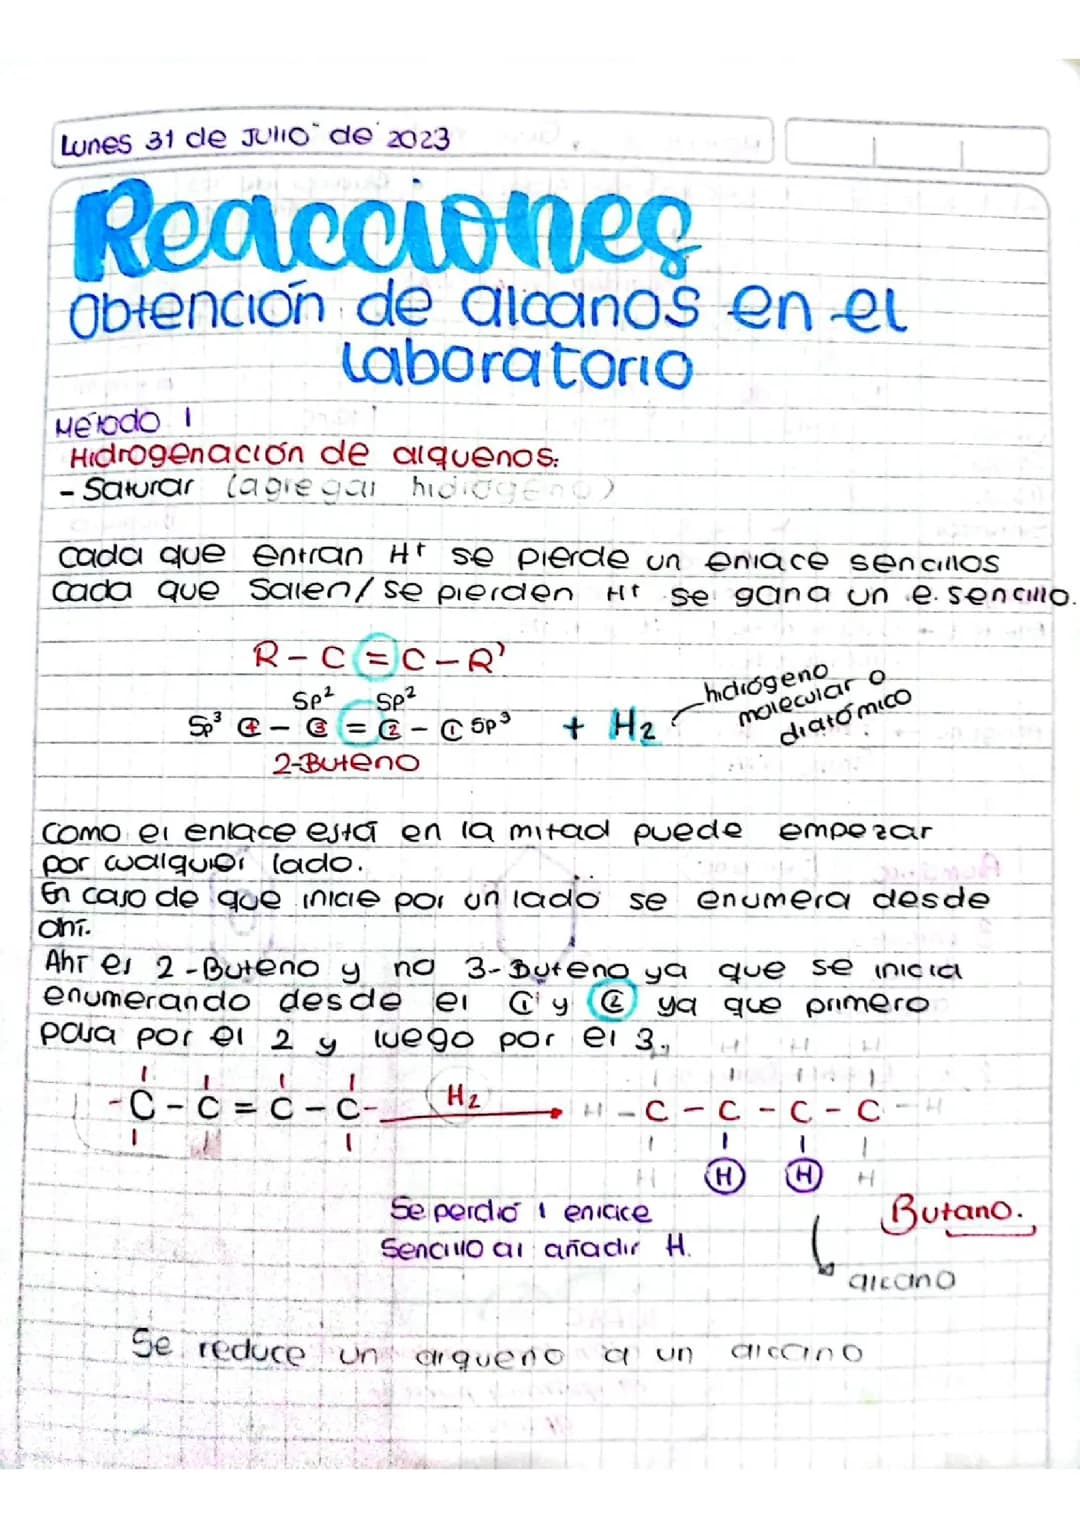 Lunes 31 de Julio de 2023
Reacciones
Obtención de alcanos en el
Laboratorio
Método 1
Hidrogenación de alquenos:
- Saturar (agregar hidrógeno)
Cada que entran H+ se pierde un enlace sencillos
Cada que Salen/se pierden H+ se gana un e. sencillo.
R - C = C - R'
Sp² Sp²
Sp³ C4 - C3 = C2 - C1 Sp³ + H₂
hidrógeno
molecular o
diatómico
2-Buteno
Como el enlace está en la mitad puede empezar
por cualquier lado.
En caso de que inicie por un lado se enumera desde
ahí.
Ahí es 2-Buteno y no 3-Buteno ya que se inicia
enumerando desde el C1 y C2 ya que primero
pasa por el 2 y luego por el 3.
H H H
-C - C = C - C- H₂ H - C - C - C - C - H
H H H H
Se perdió 1 enlace
Sencillo al añadir H.
Butano.
alcano
Se reduce un alqueno a un alcano